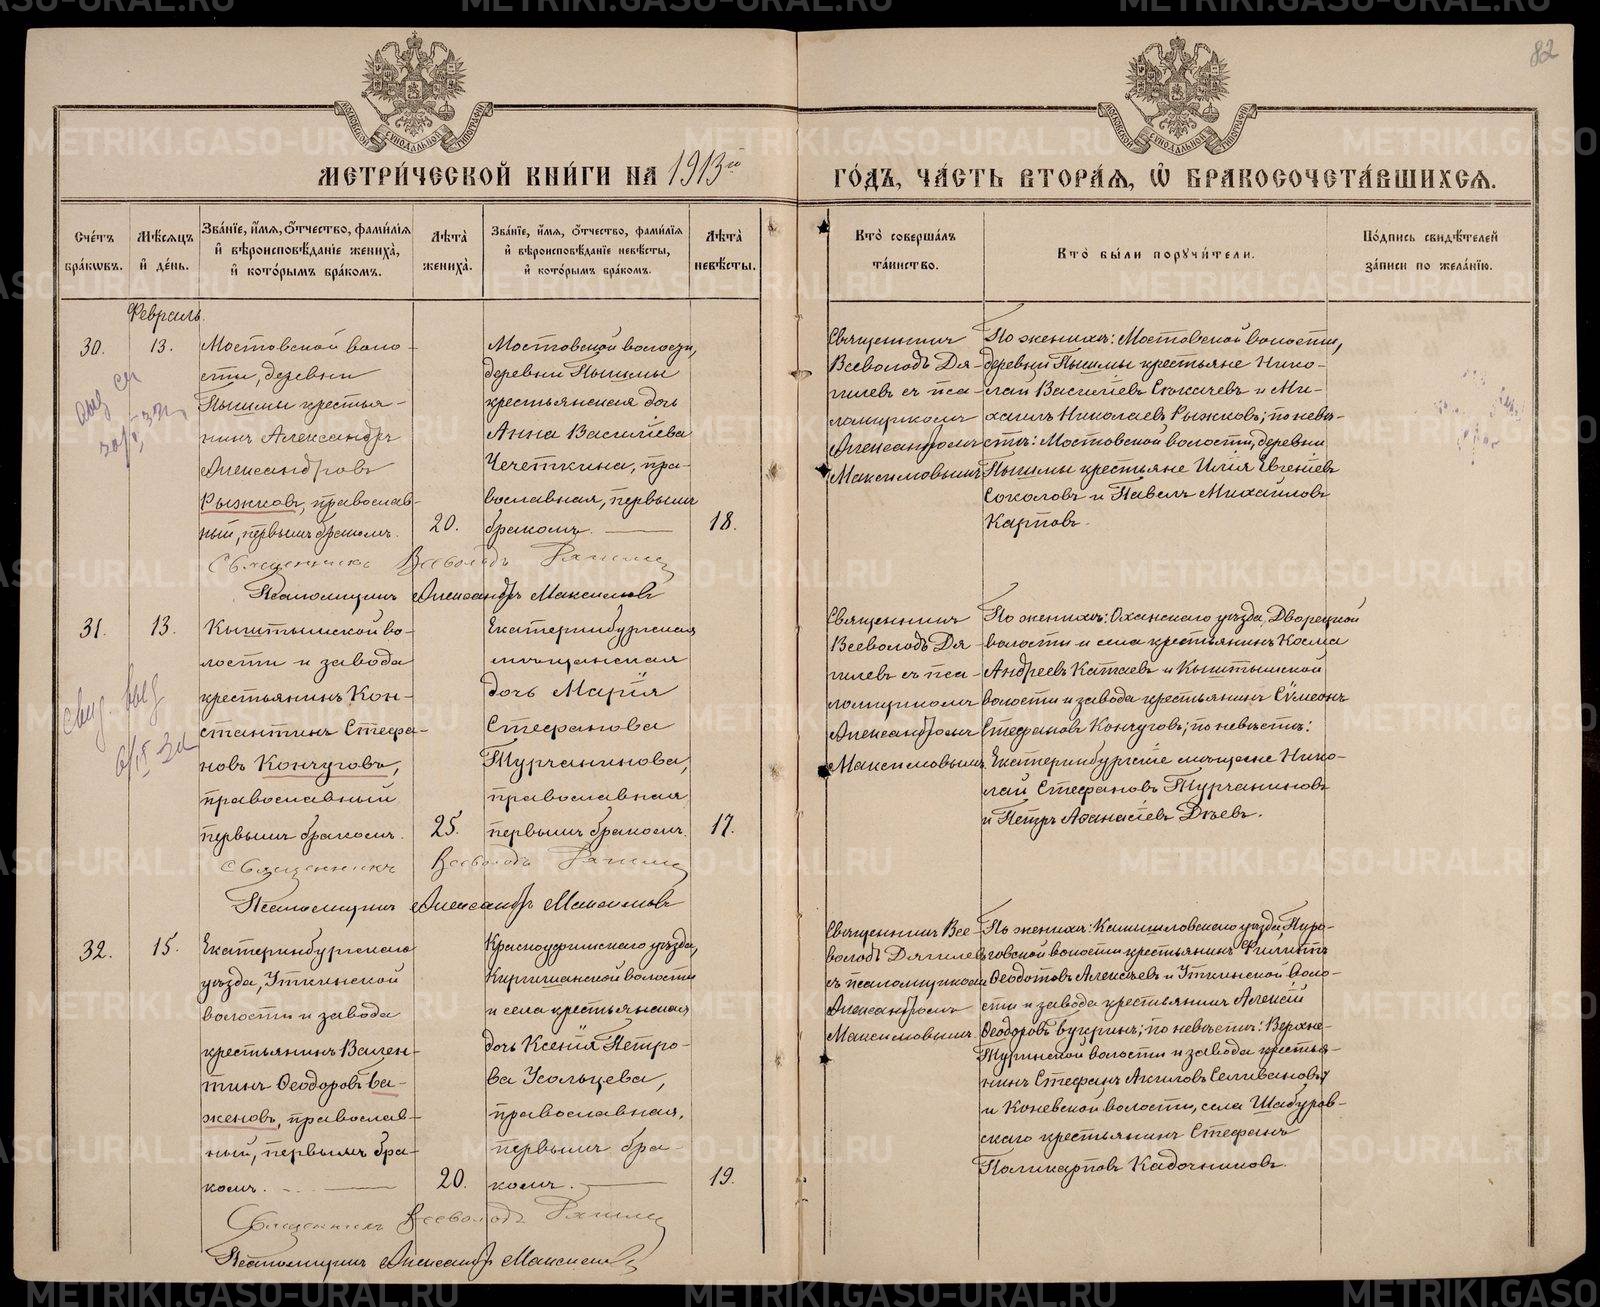 82
МЕТРИ́ЧЕСКОЙ КНИ́ГИ НА 1913й
ГО́ДЪ, ЧА́СТЬ ВТОРА́Ѧ, Ѽ БРАКОСОЧЕТА́ВШИХСѦ.
Сче́тъ бра́кѡвъ.
Мѣ́сѧцъ и҆ де́нь.
Зва́нїе, и҆́мѧ, ѻ҆́тчество, фами́лїѧ и҆ вѣроисповѣ́данїе жениха̀, и҆ кото́рымъ бра́комъ.
Лѣ́та жениха̀.
Зва́нїе, и҆́мѧ, ѻ҆́тчество, фами́лїѧ и҆ вѣроисповѣ́данїе невѣ́сты, и҆ кото́рымъ бра́комъ.
Лѣ́та невѣ́сты.
Кто̀ соверша́лъ та́инство.
Кто̀ бы́ли порꙋчи́тели.
По́дпись свидѣ́телей за́писи по жела́нїю.
Февраль.
30.
13.
Мостовской воло-
сти, деревни
Пышмы крестья-
нинъ Александръ
Александровъ
Рыжковъ, православ-
ный, первымъ бракомъ.
20.
Мостовской волости,
деревни Пышмы
крестьянская дочь
Анна Васильева
Чечеткина, пра-
вославная, первымъ
бракомъ.
18.
Священникъ
Всеволодъ Дя-
гилевъ съ пса-
ломщикомъ
Александромъ
Максимовымъ
По женихѣ: Мостовской волости,
деревни Пышмы крестьяне Нико-
лай Васильевъ Сюкачевъ и Ми-
хаилъ Николаевъ Рыжковъ; по невѣ-
стѣ: Мостовской волости, деревни
Пышмы крестьяне Илія Евгеніевъ
Соколовъ и Павелъ Михайловъ
Карповъ.
Священникъ Всеволодъ Дягилевъ
Псаломщикъ Александръ Максимовъ
31.
13.
Кыштымской во-
лости и завода
крестьянинъ Кон-
стантинъ Стефа-
новъ Кончуговъ,
православный
первымъ бракомъ.
25.
Екатеринбургская
мѣщанская
дочь Марія
Стефанова
Турчанинова,
православная
первымъ бракомъ.
17.
Священникъ
Всеволодъ Дя-
гилевъ съ пса-
ломщикомъ
Александромъ
Максимовымъ
По женихѣ: Оханскаго уѣзда, Дворецкой
волости и села крестьянинъ Косма
Андреевъ Катаевъ и Кыштымской
волости и завода крестьянинъ Сѵмеонъ
Стефановъ Кончуговъ; по невѣстѣ:
Екатеринбургскіе мѣщане Нико-
лай Стефановъ Турчаниновъ
и Петръ Аѳанасіевъ Дѣевъ.
Священникъ Всеволодъ Дягилевъ
Псаломщикъ Александръ Максимовъ
32.
15.
Екатеринбургскаго
уѣзда, Уткинской
волости и завода
крестьянинъ Вален-
тинъ Ѳеодоровъ Ва-
женовъ, православ-
ный, первымъ бра-
комъ.
20.
Красноуфимскаго уѣзда,
Киргишанской волости
и села крестьянская
дочь Ксенія Петро-
ва Усольцева,
православная,
первымъ бра-
комъ.
19.
Священникъ Все-
володъ Дягилевъ
съ псаломщикомъ
Александромъ
Максимовымъ.
По женихѣ: Камышловскаго уѣзда, Пиро-
говской волости крестьянинъ Филиппъ
Ѳеодотовъ Алексѣевъ и Уткинской воло-
сти и завода крестьянинъ Алексій
Ѳеодоровъ Букринъ; по невѣстѣ: Верхне-
Туринской волости и завода крестья-
нинъ Стефанъ Акиловъ Селивановъ
и Коневской волости, села Шабуров-
скаго крестьянинъ Стефанъ
Поликарповъ Кадочниковъ.
Священникъ Всеволодъ Дягилевъ
Псаломщикъ Александръ Максимовъ
METRIKI.GASO-URAL.RU